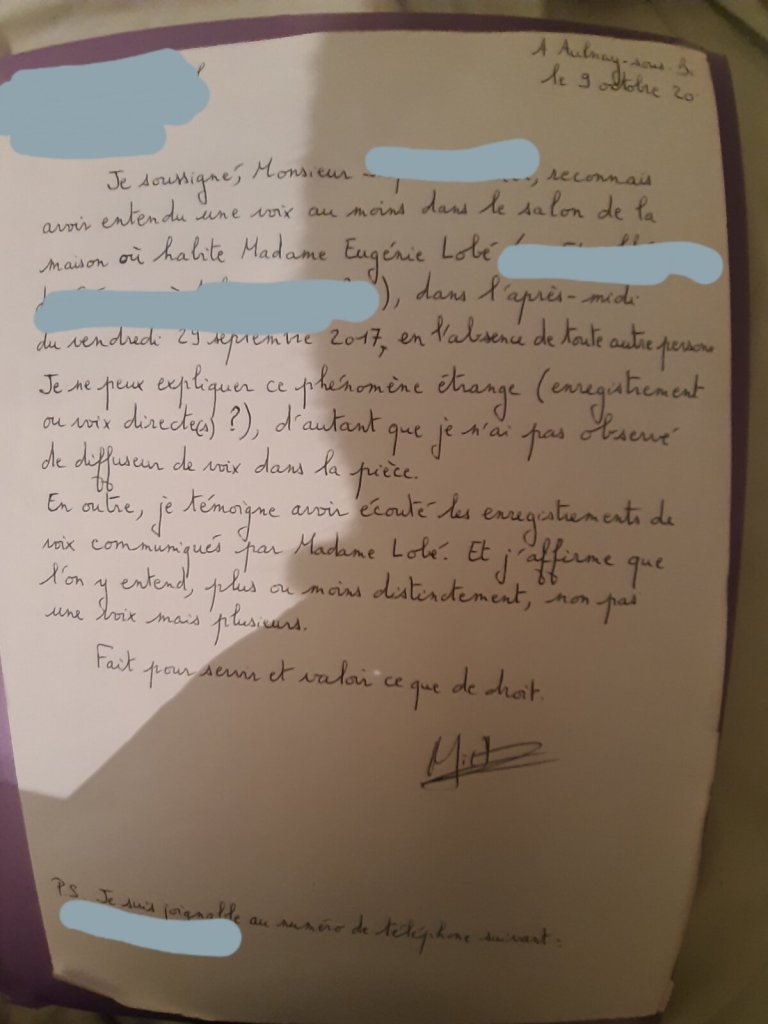 A Aulnay-sous-B.
le 9 octobre 20
Je soussigné, Monsieur , reconnais
avoir entendu une voix au moins dans le salon de la
maison où habite Madame Eugénie Lobé
), dans l'après-midi
du vendredi 29 septembre 2017, en l'absence de toute autre personne
Je ne peux expliquer ce phénomène étrange (enregistrement
ou voix directe(s) ?), d'autant que je n'ai pas observé
de diffuseur de voix dans la pièce.
En outre, je témoigne avoir écouté les enregistrements de
voix communiqués par Madame Lobé. Et j'affirme que
l'on y entend, plus ou moins distinctement, non pas
une voix mais plusieurs.
Fait pour servir et valoir ce que de droit.
P.S. Je suis joignable au numéro de téléphone suivant :